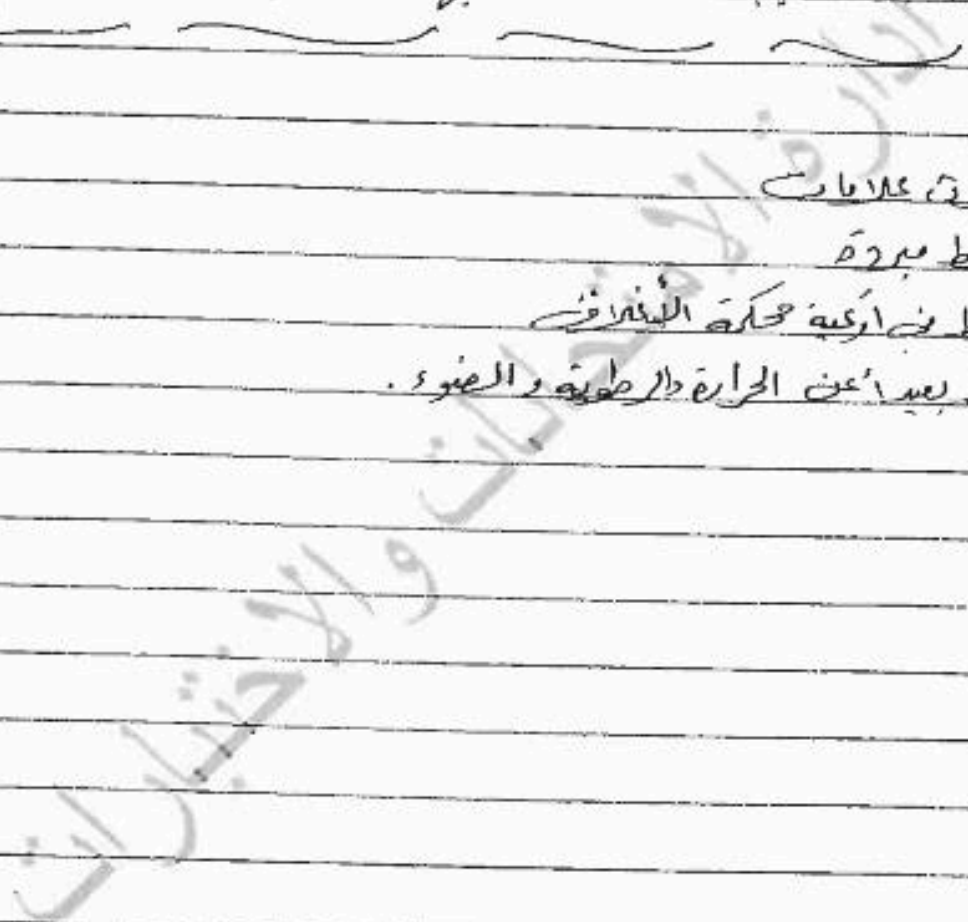 علامات
مبردة
في أوعية محكمة الأغلاق
بعيداً عن الحرارة والرطوبة والضوء.
إدارة الامتحانات والاختبارات